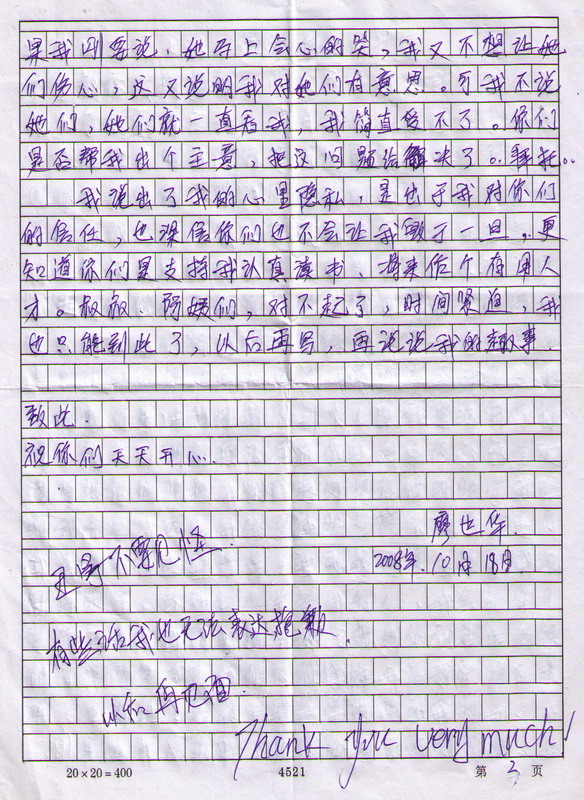 果我叫要说，她马上会心的笑，我又不想让她
们伤心，反又说明我对她们有意思。可我不说
她们，她们就一直看我，我简直受不了。你们
是否帮我出个主意，把这问题给解决了。拜托..
我说出了我的心里隐私，是出于我对你们
的信任，也深信你们也不会让我毁于一旦，更
知道你们是支持我认真读书，将来作个有用人
才。叔叔、阿姨们，对不起了，时间紧迫，我
也只能到此了，以后再写，再说说我的趣事.
致此.
祝你们天天开心.
廖世华.
2008年.10月18日
不要见怪.
有些话我也无法表达抱歉.
以后再见面.
Thank you very much!
20×20=400 4521 第 3 页